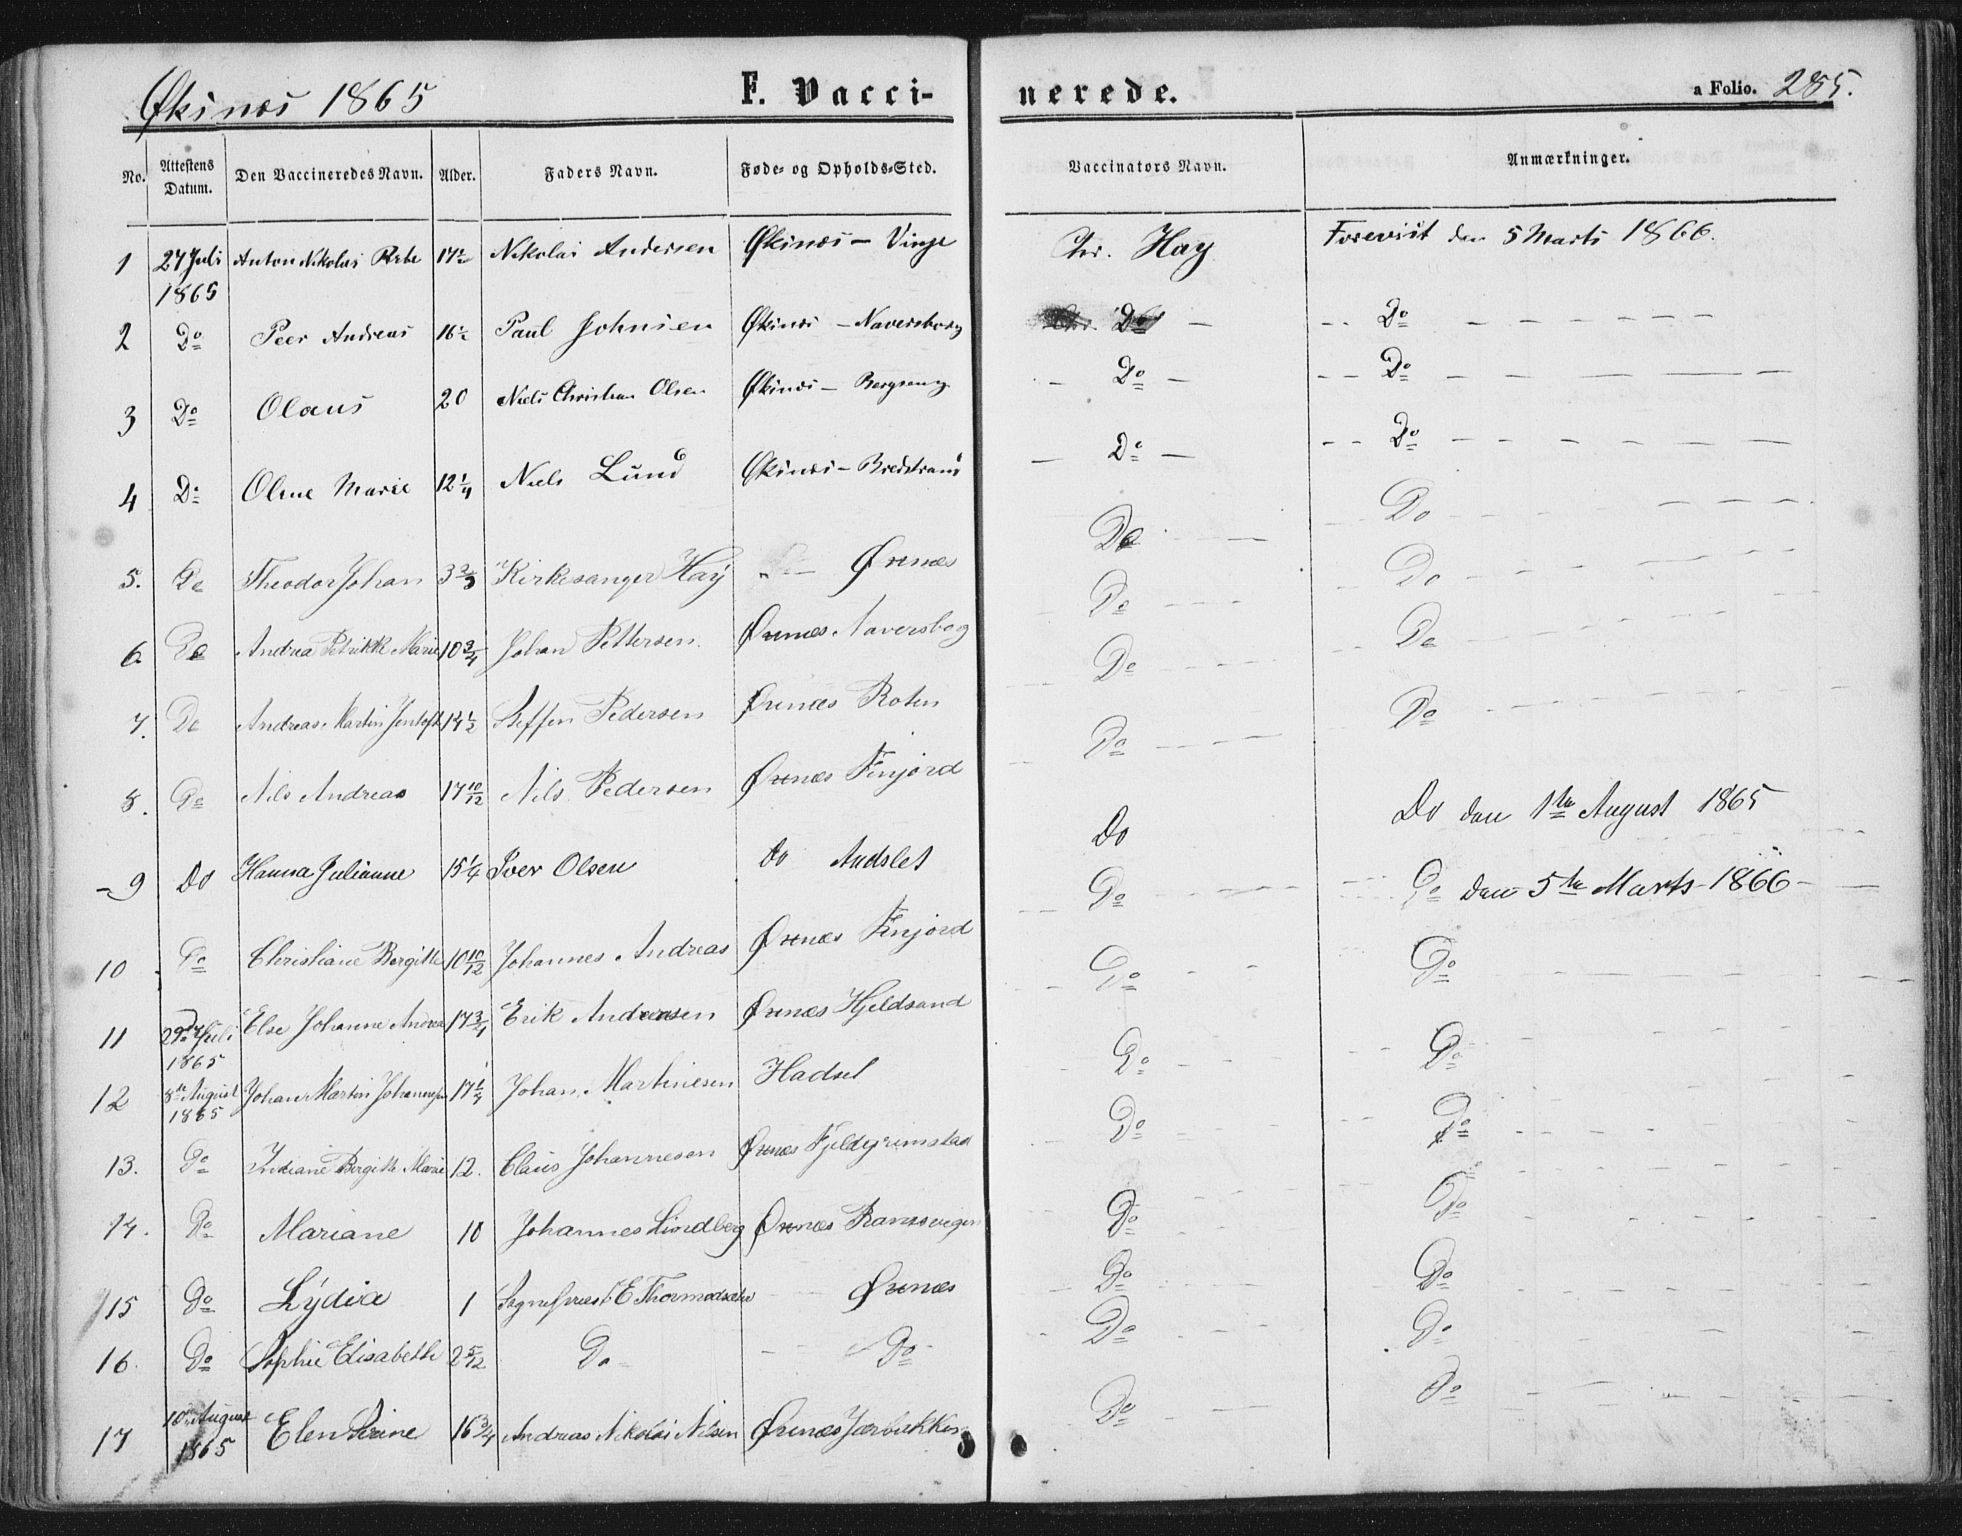 Øksnæs 1865 F. Vacci- nerede. a Folio. 285.
No. Attestens Datum. Den Vaccineredes Navn. Alder. Faders Navn. Føde- og Opholds-Sted. Vaccinators Navn. Anmærkninger.
1 27 Juli 1865 Anton Nikolai 17 Nikolai Andersen Øksnæs - Vinje Chr. Hay Forevist den 5 Marts 1866.
2 Do Peer Andreas 16½ Paul Johnsen Øksnæs - Naversborg Do - - - Do - - - - - -
3 Do Olaus 20 Niels Christian Olsen Øksnæs - Bergseng - Do - - - Do - - - - -
4 Do Oline Marie 12¼ Niels Lund Øksnæs - Bredstrand - Do - - - Do - - - - - -
5. Do Theodor Johan 3 Kirkesanger Hay Øxnæs Do Do
6. Do Andrea Petrikke Marie 10¾ Johan Pettersen. Øxnæs Naversborg Do Do
7. Do Andreas Martin Jentoft 14½ Steffen Pedersen Øxnæs Roten Do Do
8. Do Nils Andreas 17 10/12 Nils Pedersen Øxnæs Finjord Do Do
- 9 Do Hanna Julianne 15¼ Iver Olsen do Andslet Do Do den 1te August 1865
10 Do Christiane Bergitte 10 10/12 Johannes Andreas Øxnæs Finjord Do Do den 5te Marts 1866 -
11 29 Juli 1865 Else Johanne Andrea 17¾ Erik Andreasen Øxnæs Hjeldsand Do Do
12 8de August 1865 Johan Martin 17¼ Johan Martinesen Hadsel Do Do
13. Do Indiane Bergitte Marie 12. Claus Johannesen Øxnæs Fjeldgrimstad Do Do
14. Do Mariane 10 Johannes Lindberg Øxnæs Ramsvigen Do Do
15 Do Lydia 1 Sognepræst E Øxnæs Do Do
16. Do Sophie Elisabeth 2 5/12 Do Do Do Do
17 10de August 1865 Elen 16¾ Andreas Nikolai Nilsen Øxnæs Do Do